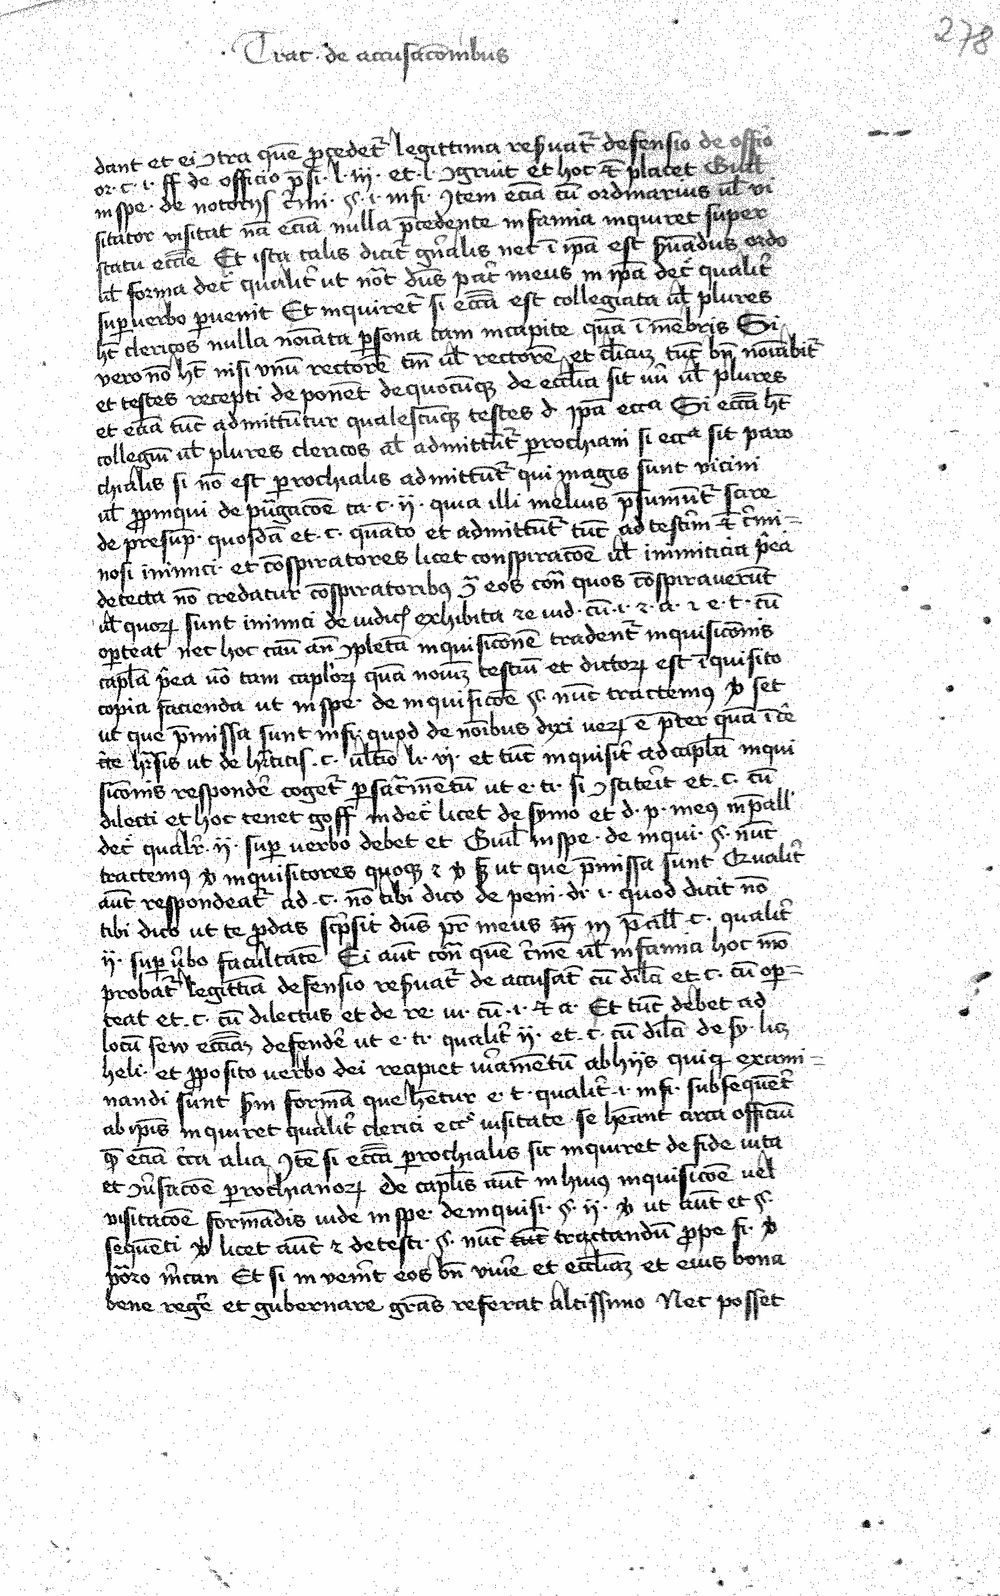 278
Trac. de accusac̄onibus
dant et ei ꝯtra quē ꝓcedet᷑ legittima res̄uat᷑ defensio de offio
or. c. i. ff de officio p̄si. l. iii. et l. ꝯgruit et hoc etiā placet Guill
in spe. de notoriis c̄mi. §. i. infi. Itē ecīa cū ordinarius ul̄ vi
sitator visitat nā ecīa nulla p̄cedente infamia inquiret super
statu ecc̄ie Et ista talis dicit᷑ gn̄alis nec ī ip̄a est s̄uādus ordo
ul̄ forma dec̄ qualit᷑ ut nōt dn̄s pat᷑ meus in ip̄a dec̄ qualit᷑
sup verbo ꝑuenit Et inquiret᷑ si ecc̄ia est collegiata ul̄ plures
hꝫ clericos nulla noīata ꝑsona tam in capite quā ī mēbris Si
vero nō hꝫ nisi vnū rectorē tn̄ ul̄ rectorē et clicū tūc bn̄ noīabit᷑
et testes recepti deponēt de quocūqꝫ de ecclīa sit un̄ ul̄ plures
et ecīa tūc admittūtur qualescūqꝫ testes d ip̄a ecca Si ecc̄ia hꝫ
collegiū ul̄ plures clericos al̄ admittūt᷑ ꝑrochiani si ecca sit paro
chialis si nō est ꝑrochialis admittūt᷑ qui magis sunt vicini
ul̄ ꝓpinqui de pūgacōe ca. c. ii. quia illi melius p̄sumūt᷑ scire
de presup. quosdā et. c. quāto et admittūt᷑ tūc ad testim̄ etiā c̄mi=
nosi inimici et cōspiratores licet conspiracōe ul̄ inimiticia p̄ea
detecta nō credatur cōspiratoribus ꝫ eos con̄ quos cōspirauerūt
ul̄ quoꝝ sunt inimici de iudiciis exhibita de iud. cū. i. et. a. et e. t. cū
oꝑteat nec hoc cāu an̄ ꝯpletā inquisicōnē tradent᷑ inquisicōnis
capl̄a p̄ea uō tam capl̄oꝝ quā noīuꝫ testiū et dictoꝝ est īquisito
copia facienda ut in spe. de inquisicōe §. nūc tractemꝰ v̄ set
ut que p̄missa sunt infi. quod de noībus dixi veꝝ ē p̄ter quā ī cē
c̄ie hēsis ut de hēticis. c. ul̄tio li. vi. et tūc inquisit᷑ ad capl̄a inqui
sicōnis respondē coget᷑ ꝑ sac̄mentū ut e. ti. si ꝯstiterit et. c. cū
dilecti et hoc tenet goff in dec̄ licet de symo et d. p. meꝰ in p̄all̄
dec̄ qualr̄. ii. sup verbo debet et Guil̄ in spe. de inqui. §. nūc
tractemꝰ v̄ inquisitores quoqꝫ et v̄ ꝫ ut que p̄missa sunt Qualit᷑
aut̄ respondeat᷑ ad. c. nō tibi dico de peni. di i. quod dicit nō
tibi dico ut te ꝓdas scp̄sit dn̄s pr̄ meus in p̄all̄ c. qualit᷑
ii. sup ūbo facultatē Ei aut̄ con̄ quē c̄mē ul̄ infamia hoc mō
probat᷑ legittīa defensio res̄uat᷑ de accusat̄ cū dil̄a et c. cū oꝑ=
teat et. c. cū dilectus et de re. iu. cū. i. et a. Et tūc debet ad
locū seu ecc̄iaꝫ defendē ut e. ti. qualit᷑ ii. et. c. cū dil̄a de sy. liꝫ
heli. et ꝓposito verbo dei recipiet iur̄amentū ab hiis quiqꝫ exami=
nandi sunt s̄m formā que hētur e. t. qualit᷑. i. infi. subsequēt᷑
ab ip̄is inquiret qualit᷑ clerici ecc̄ uisitate se heāt circa officiū
qꝫ ecīa c̄ca alia Itē si ecc̄ia ꝑrochialis sit inquiret de fide uita
et ꝯūsacōe ꝑrochianoꝝ De capl̄is aut̄ in huiꝰ inquisicōe uel
visitacōe formādis uide in spe. de inquisi. §. ii. v̄ ut aut̄ et §.
sequēti v̄ licet aut̄ et de testi. §. nūc tractandū ꝓpe fi. v̄
pōro in̄can Et si inuenīt eos bn̄ viūe et ecclīaꝫ et eius bona
bene regē et gubernare grās referat altissimo Nec posset